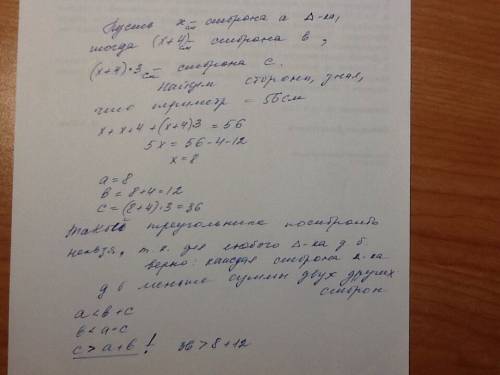 Пусть x см – сторона a Δ-ка,
тогда (x+4) см – сторона в,
(x+4)·3 см – сторона с.
Найдем стороны, зная,
что периметр = 56см
x+x+4+(x+4)3 = 56
5x = 56-4-12
x = 8
a = 8
в = 8+4 = 12
c = (8+4)·3 = 36
Такой треугольника построить
нельзя, т.к. для любого Δ-ка д.б.
верно: каждая сторона Δ-ка
д б меньше суммы двух других
сторон
a < в + c
в < a + c
c > a + в ! 36 > 8 + 12